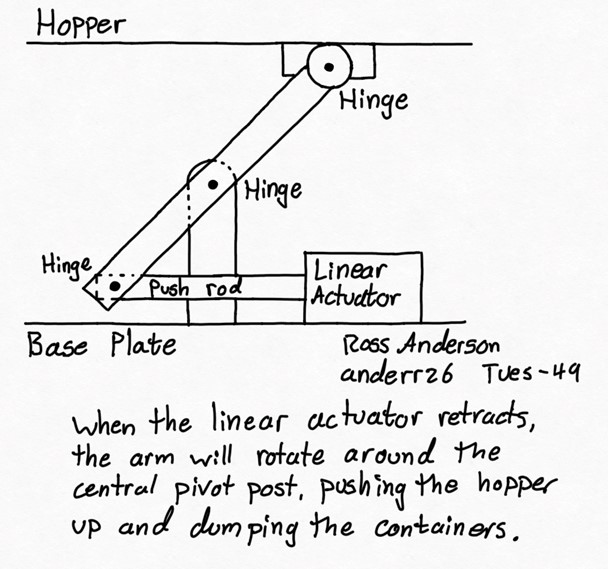 Hopper
Hinge
Hinge
Hinge
Push rod
Linear
Actuator
Base Plate
Ross Anderson
anderr26 Tues-49
When the linear actuator retracts,
the arm will rotate around the
central pivot post, pushing the hopper
up and dumping the containers.